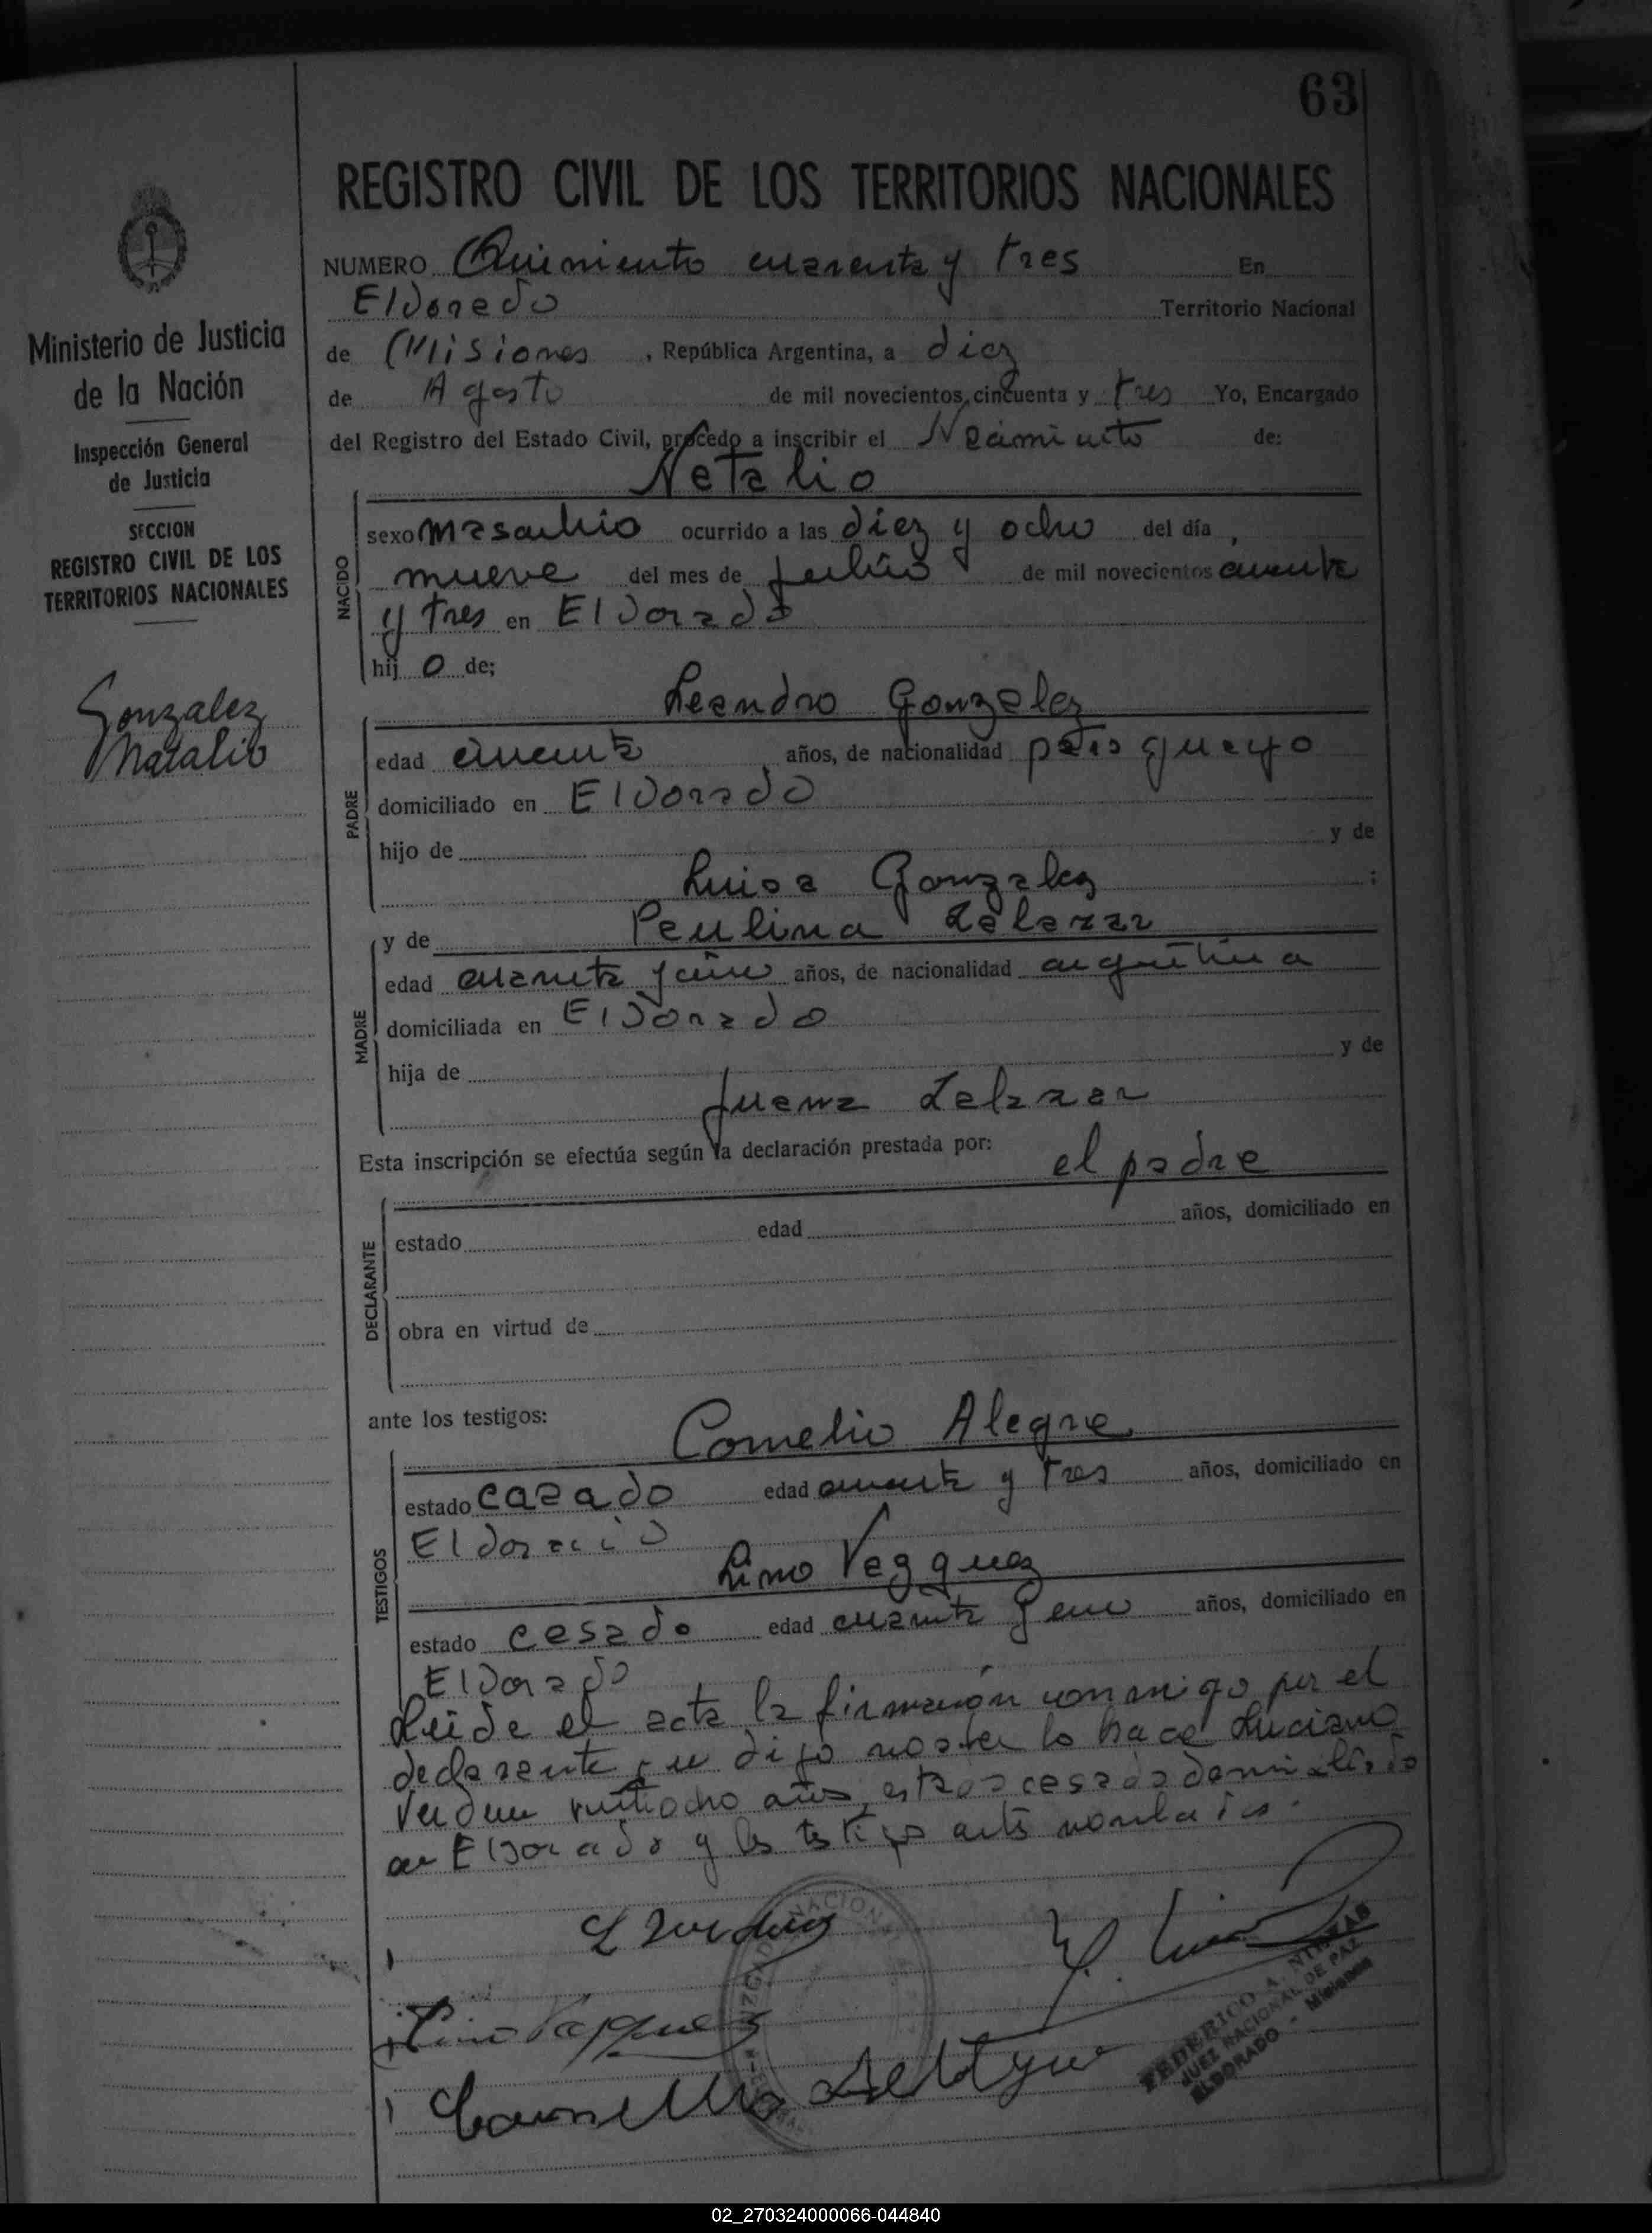 63
REGISTRO CIVIL DE LOS TERRITORIOS NACIONALES
Ministerio de Justicia
de la Nación
Inspección General
de Justicia
SECCION
REGISTRO CIVIL DE LOS
TERRITORIOS NACIONALES
Gonzalez
Natalio
NUMERO Quiniento cuarenta y tres En
Eldorado Territorio Nacional
de Misiones , República Argentina, a diez
de Agosto de mil novecientos cincuenta y tres Yo, Encargado
del Registro del Estado Civil, procedo a inscribir el Nacimiento de:
Natalio
NACIDO
sexo masculino ocurrido a las diez y ocho del día
nueve del mes de de mil novecientos
y tres en Eldorado
hij o de;
Leandro Gonzalez
PADRE
edad años, de nacionalidad paraguayo
domiciliado en Eldorado
hijo de y de
Luisa Gonzalez ;
MADRE
y de Paulina Zalazar
edad cuarenta años, de nacionalidad argentina
domiciliada en Eldorado
hija de y de
Juana Zalazar
Esta inscripción se efectúa según la declaración prestada por: el padre
DECLARANTE
estado edad años, domiciliado en
obra en virtud de
ante los testigos: Cornelio Alegre
TESTIGOS
estado casado edad y tres años, domiciliado en
Eldorado
Lino Vazquez
estado casado edad cuarenta años, domiciliado en
Eldorado
Leida el acta la firmaron conmigo por el
declarante lo hace Luciano
Verdun años, domiciliado
en Eldorado y los testigos
Lino Vazquez
JUZGADO NACIONAL
FEDERICO A.
JUEZ NACIONAL DE PAZ
ELDORADO - Misiones
02_270324000066-044840